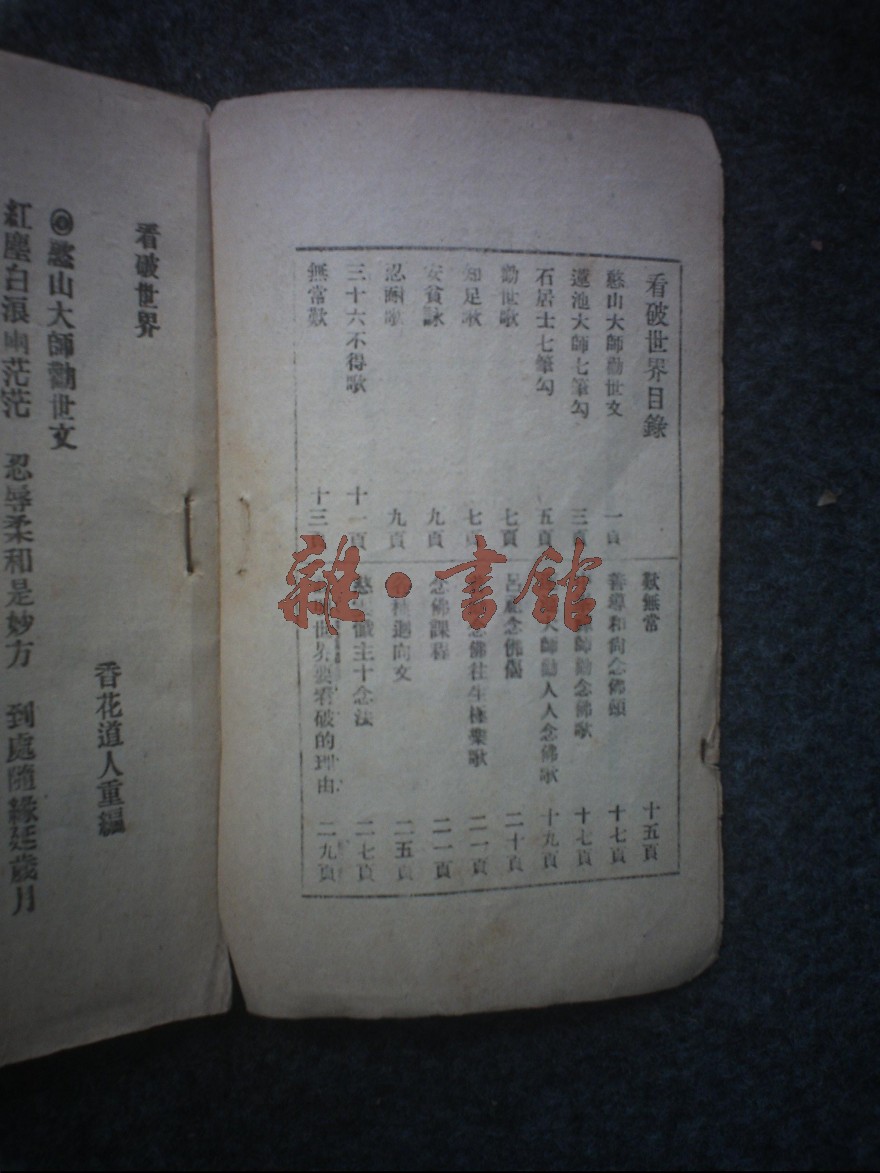 看破世界目錄
憨山大師勸世文 一頁
蓮池大師七筆勾 三頁
石居士七筆勾 五頁
勸世歌 七頁
知足歌 七頁
安貧詠 九頁
忍耐歌 九頁
三十六不得歌 十一頁
無常歎 十三
歎無常 十五頁
善導和尚念佛頌 十七頁
師勸念佛歌 十七頁
大師勸人人念佛歌 十九頁
呂祖念佛偈 二十頁
念佛往生極樂歌 二一頁
念佛課程 二一頁
迴向文 二五頁
慈雲懺主十念法 二七頁
世界要看破的理由 二九頁
看破世界
香花道人重編
◎憨山大師勸世文
紅塵白浪兩茫茫 忍辱柔和是妙方 到處隨緣延歲月
雜·書館